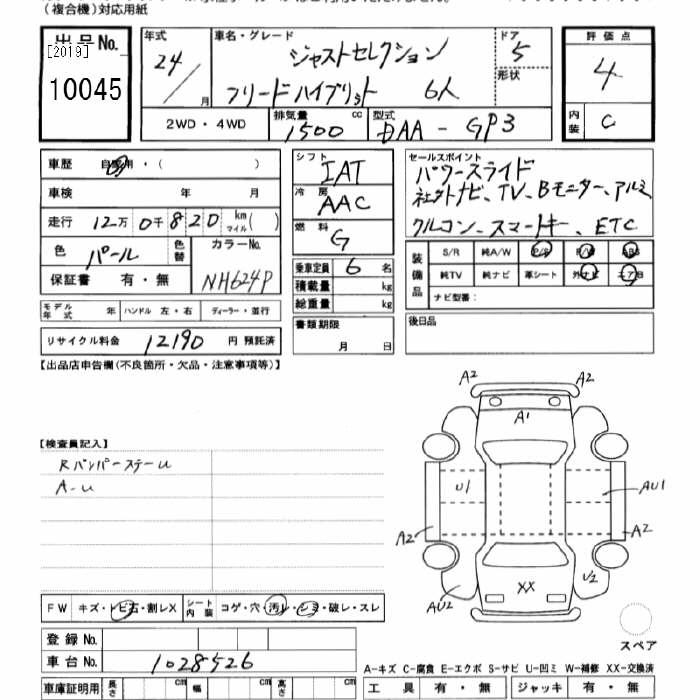 (複合機)対応用紙
出品No.
[2019]
10045
年式
24/
月
車名・グレード
ジャストセレクション
フリードハイブリット 6人
ドア
5
形状
評価点
4
内装
C
2WD・4WD
排気量
1500
cc
型式
DAA-GP3
車歴 自家用・( )
車検 年 月
走行 12万 0千820 km マイル( )
色 パール 色替 カラーNo. NH624P
保証書 有・無
モデル年式 年 ハンドル 左・右 ディーラー・並行
リサイクル料金 12190 円 預託済
シフト IAT
冷房 AAC
燃料 G
乗車定員 6 名
積載量 kg
総重量 kg
書類期限
月 日
セールスポイント
パワースライド
社外ナビ、TV、Bモニター、アルミ、
クルコン、スマートキー、ETC
装備品
S/R 純A/W P/S P/W ABS
純TV 純ナビ 革シート 外ナビ エアB
ナビ型番:
後日品
【出品店申告欄(不良箇所・欠品・注意事項等)】
【検査員記入】
Rバンパーステーu
A-u
A2 A2
A1
U1 AU1
A2 A2
AU2 XX U2
スペア
FW キズ・トビ石・割レX シート内装 コゲ・穴・汚レ・シミ・破レ・スレ
登録No.
車台No. 1028526
車庫証明用 長さ cm 幅 cm 高さ cm
A-キズ C-腐食 E-エクボ S-サビ U-凹ミ W-補修 XX-交換済
工具 有・無 ジャッキ 有・無